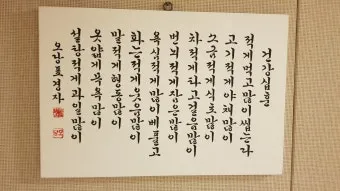 건강십훈
적게먹고많이씹는다
고기적게야채많이
소금적게식초많이
차적게타고걸음많이
번뇌적게잠은많이
욕심적게많이베풀고
화는적게웃음많이
말적게행동많이
옷얇게목욕많이
설탕적게과일많이